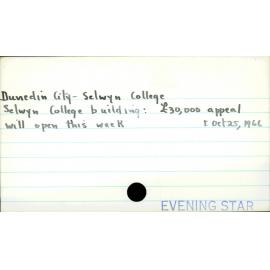 Dunedin City - Selwyn College
Selwyn College building: £30,000 appeal
will open this week Oct 25, 1966
EVENING STAR